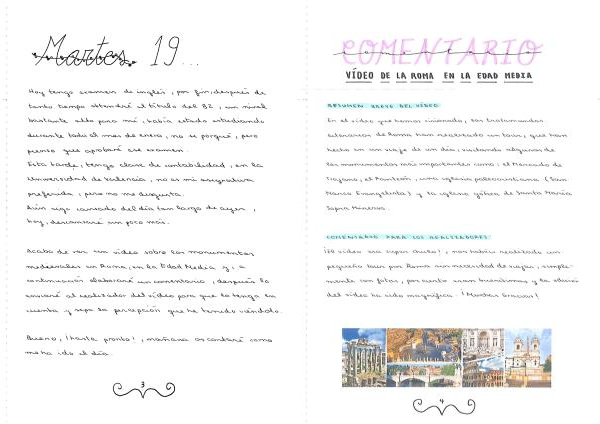 Martes 19...
Hoy tengo examen de inglés, por fin, después de
tanto tiempo obtendré el título del B2, un nivel
bastante alto para mí, había estado estudiando
durante todo el mes de enero, no se porqué, pero
pienso que aprobaré ese examen.
Esta tarde, tengo clase de contabilidad, en la
Universidad de Valencia, no es mi asignatura
preferida, pero no me disgusta.
Aún sigo cansado del día tan largo de ayer,
hoy, descansaré un poco más.
Acabo de ver un vídeo sobre los monumentos
medievales en Roma, en la Edad Media y, a
continuación elaboraré un comentario, después lo
enviaré al realizador del vídeo para que lo tenga en
cuenta y sepa la percepción que he tenido viéndolo.
Bueno, ¡hasta pronto!, mañana os contaré como
me ha ido el día.
3
COMENTARIO
comentario
VÍDEO DE LA ROMA EN LA EDAD MEDIA
RESUMEN BREVE DEL VÍDEO
En el vídeo que hemos visionado, los trotamundos
de Roma han realizado un tour, que han
hecho en un viaje de un día, visitando algunos de
los monumentos más importantes como: el Mercado de
Trajano, el Panteón, una iglesia paleocristiana (San
Marco Evangelista) y la iglesia gótica de Santa María
Sopra Minerva.
COMENTARIO PARA LOS REALIZADORES
¡El vídeo era super chulo!, nos habéis realizado un
pequeño tour por Roma sin necesidad de viajar, simple-
mente con fotos, por cierto eran buenísimas y la edición
del vídeo ha sido magnífica. ¡Muchas gracias!
4